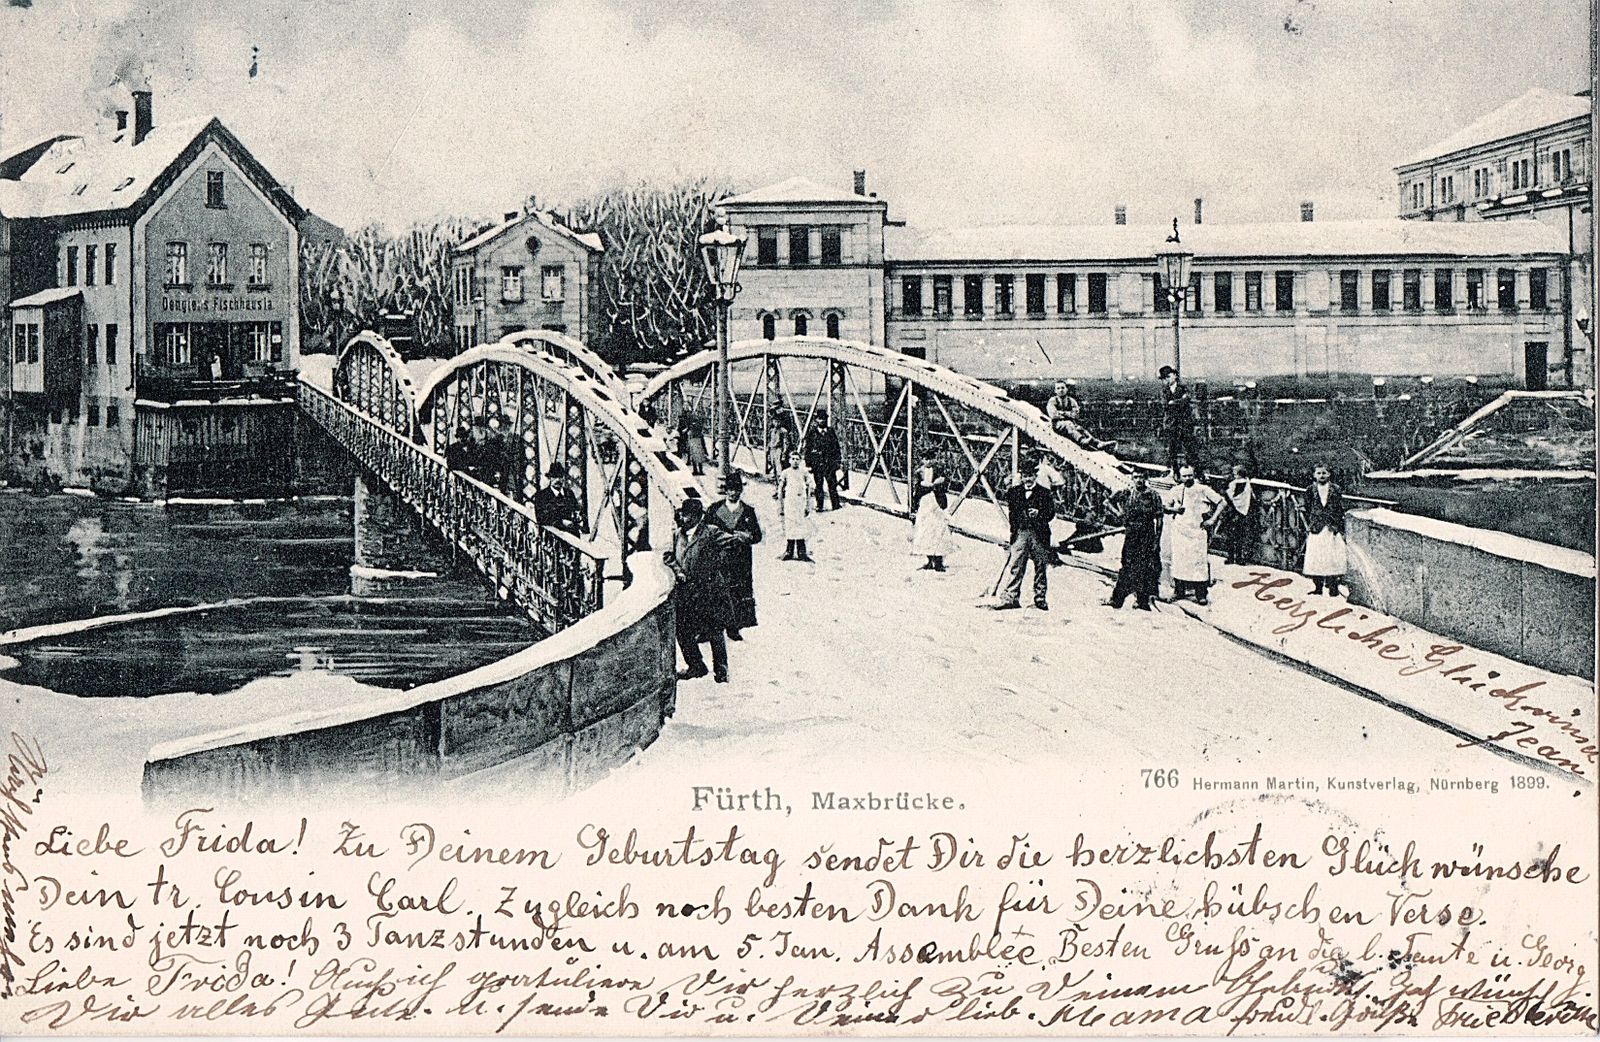 Dengler's Fischhäusla
Herzliche Glückwünsche
Jean.
766 Hermann Martin, Kunstverlag, Nürnberg 1899.
Fürth, Maxbrücke.
Liebe Frida! Zu Deinem Geburtstag sendet Dir die herzlichsten Glückwünsche
Dein tr. Cousin Carl. Zugleich noch besten Dank für Deine hübschen Verse.
Es sind jetzt noch 3 Tanzstunden u. am 5. Jan. Assemblée. Besten Gruß an die l. Tante u. Georg.
Liebe Frida! Auch ich gratuliere Dir herzlich zu Deinem Geburtst. Ich wünsche
Dir alles Gute. u. sende Dir u. Deiner lieb. Mama freundl. Grüße